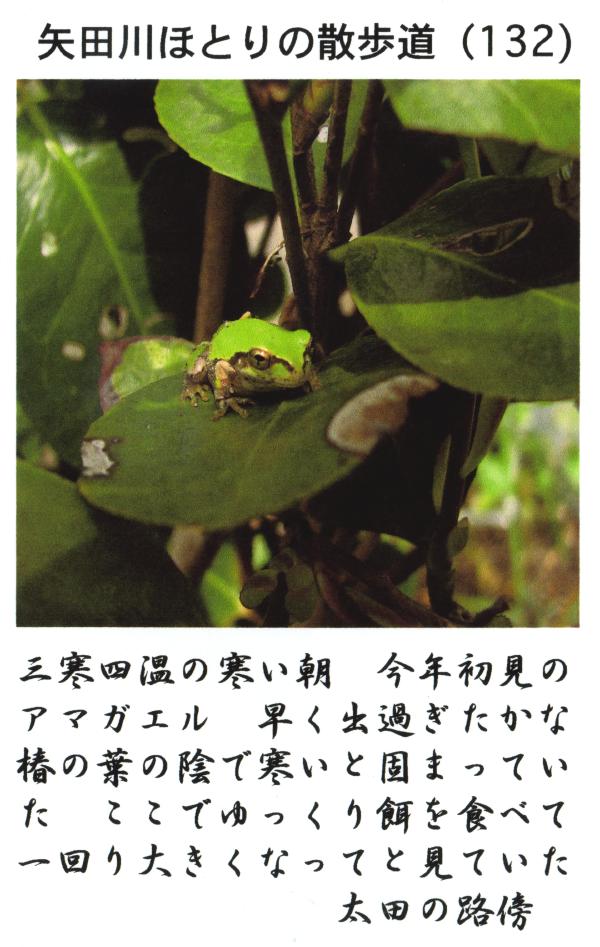 矢田川ほとりの散歩道 (132)
三寒四温の寒い朝　今年初見の
アマガエル　早く出過ぎたかな
椿の葉の陰で寒いと固まってい
た　ここでゆっくり餌を食べて
一回り大きくなってと見ていた
太田の路傍